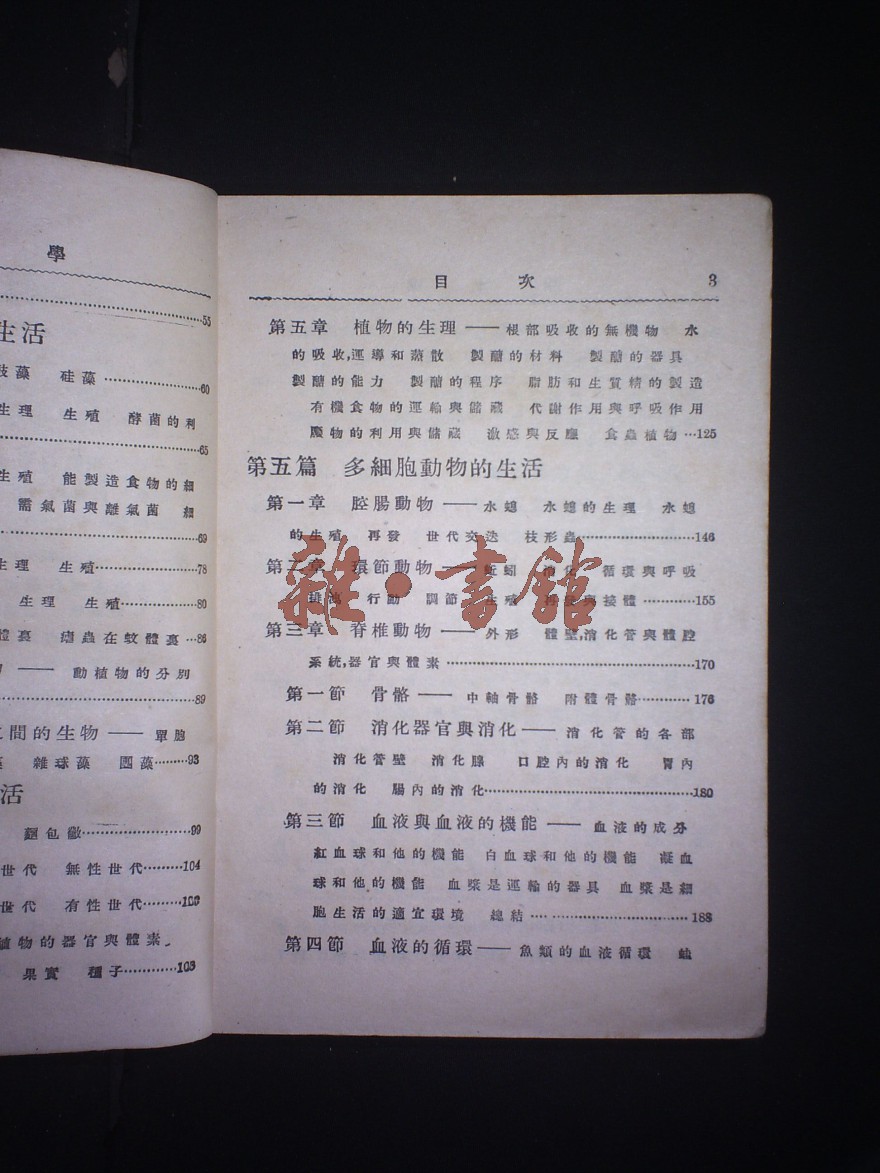 學
55
生活
硅藻 60
生理 生殖 酵菌的利
65
生殖 能製造食物的細
需氣菌與離氣菌 細
69
生理 生殖 78
生理 生殖 80
瘧蟲在蚊體裏 86
動植物的分別
89
間的生物 —— 單胞
雜球藻 團藻 93
活
麵包黴 99
世代 無性世代 104
世代 有性世代
植物的器官與體素
果實 種子 103
目 次 3
第五章 植物的生理 —— 根部吸收的無機物 水
的吸收,運導和蒸散 製醣的材料 製醣的器具
製醣的能力 製醣的程序 脂肪和生質精的製造
有機食物的運輸與儲藏 代謝作用與呼吸作用
廢物的利用與儲藏 激感與反應 食蟲植物 125
第五篇 多細胞動物的生活
第一章 腔腸動物 —— 水螅 水螅的生理 水螅
的生殖 再發 世代交迭 枝形蟲 146
第二章 環節動物 —— 蚯蚓 消化 循環與呼吸
排洩 行動 調節 生殖 再發與接體 155
第三章 脊椎動物 —— 外形 體壁,消化管與體腔
系統,器官與體素 170
第一節 骨骼 —— 中軸骨骼 附體骨骼 176
第二節 消化器官與消化 —— 消化管的各部
消化管壁 消化腺 口腔內的消化 胃內
的消化 腸內的消化 180
第三節 血液與血液的機能 —— 血液的成分
紅血球和他的機能 白血球和他的機能 凝血
球和他的機能 血漿是運輸的器具 血漿是細
胞生活的適宜環境 總結 188
第四節 血液的循環 —— 魚類的血液循環 蛙
雜·書館